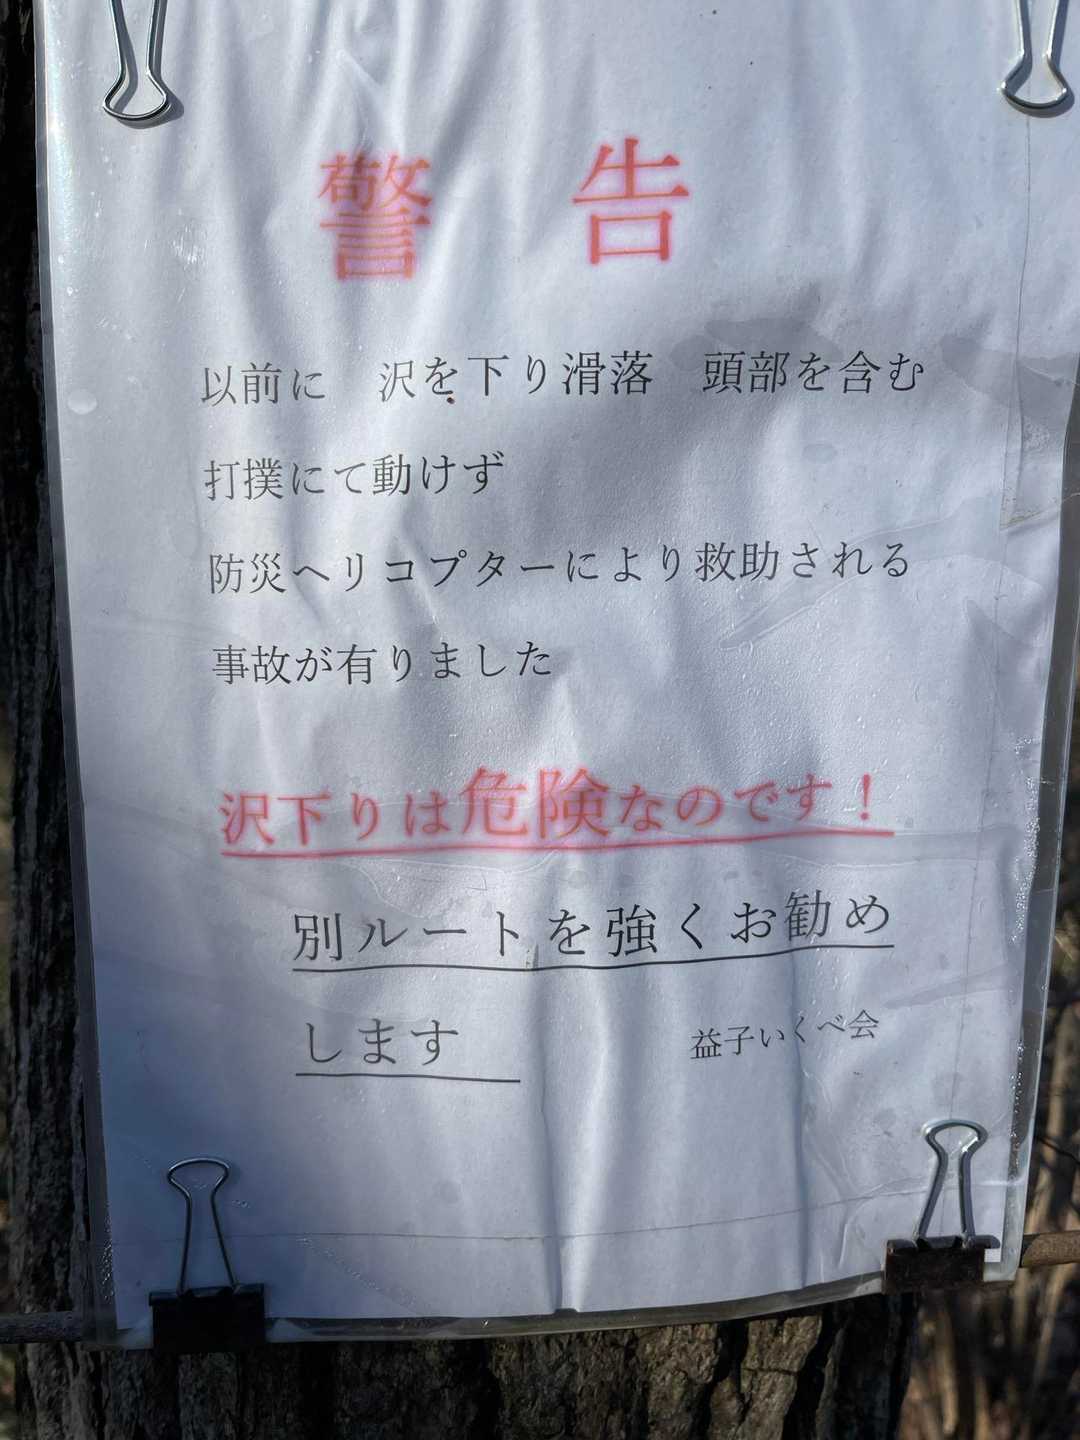 警　告
以前に　沢を下り滑落　頭部を含む
打撲にて動けず
防災ヘリコプターにより救助される
事故が有りました
沢下りは危険なのです！
別ルートを強くお勧め
します
益子いくべ会